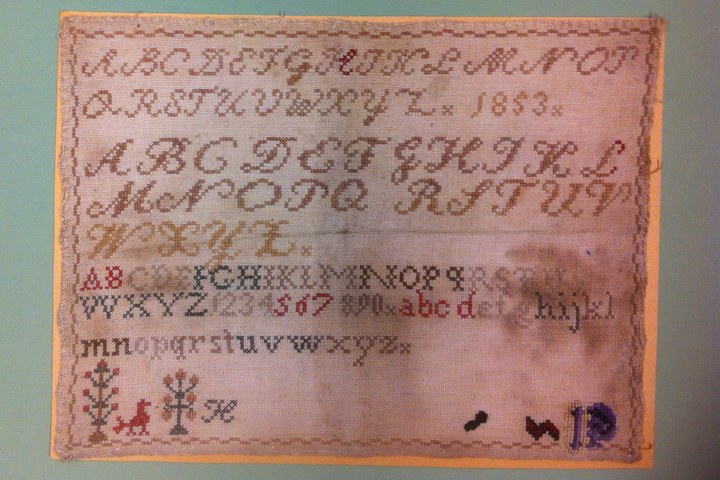 ABCDEFGHIKLMNOP
QRSTUVWXYZ× 1853×
ABCDEFGHIKL
MNOPQRSTUV
WXYZ×
ABCDEFGHIKLMNOPqRST
WXYZ1234567890×abcdefghijkl
mnopqrstuvwxyz×
H